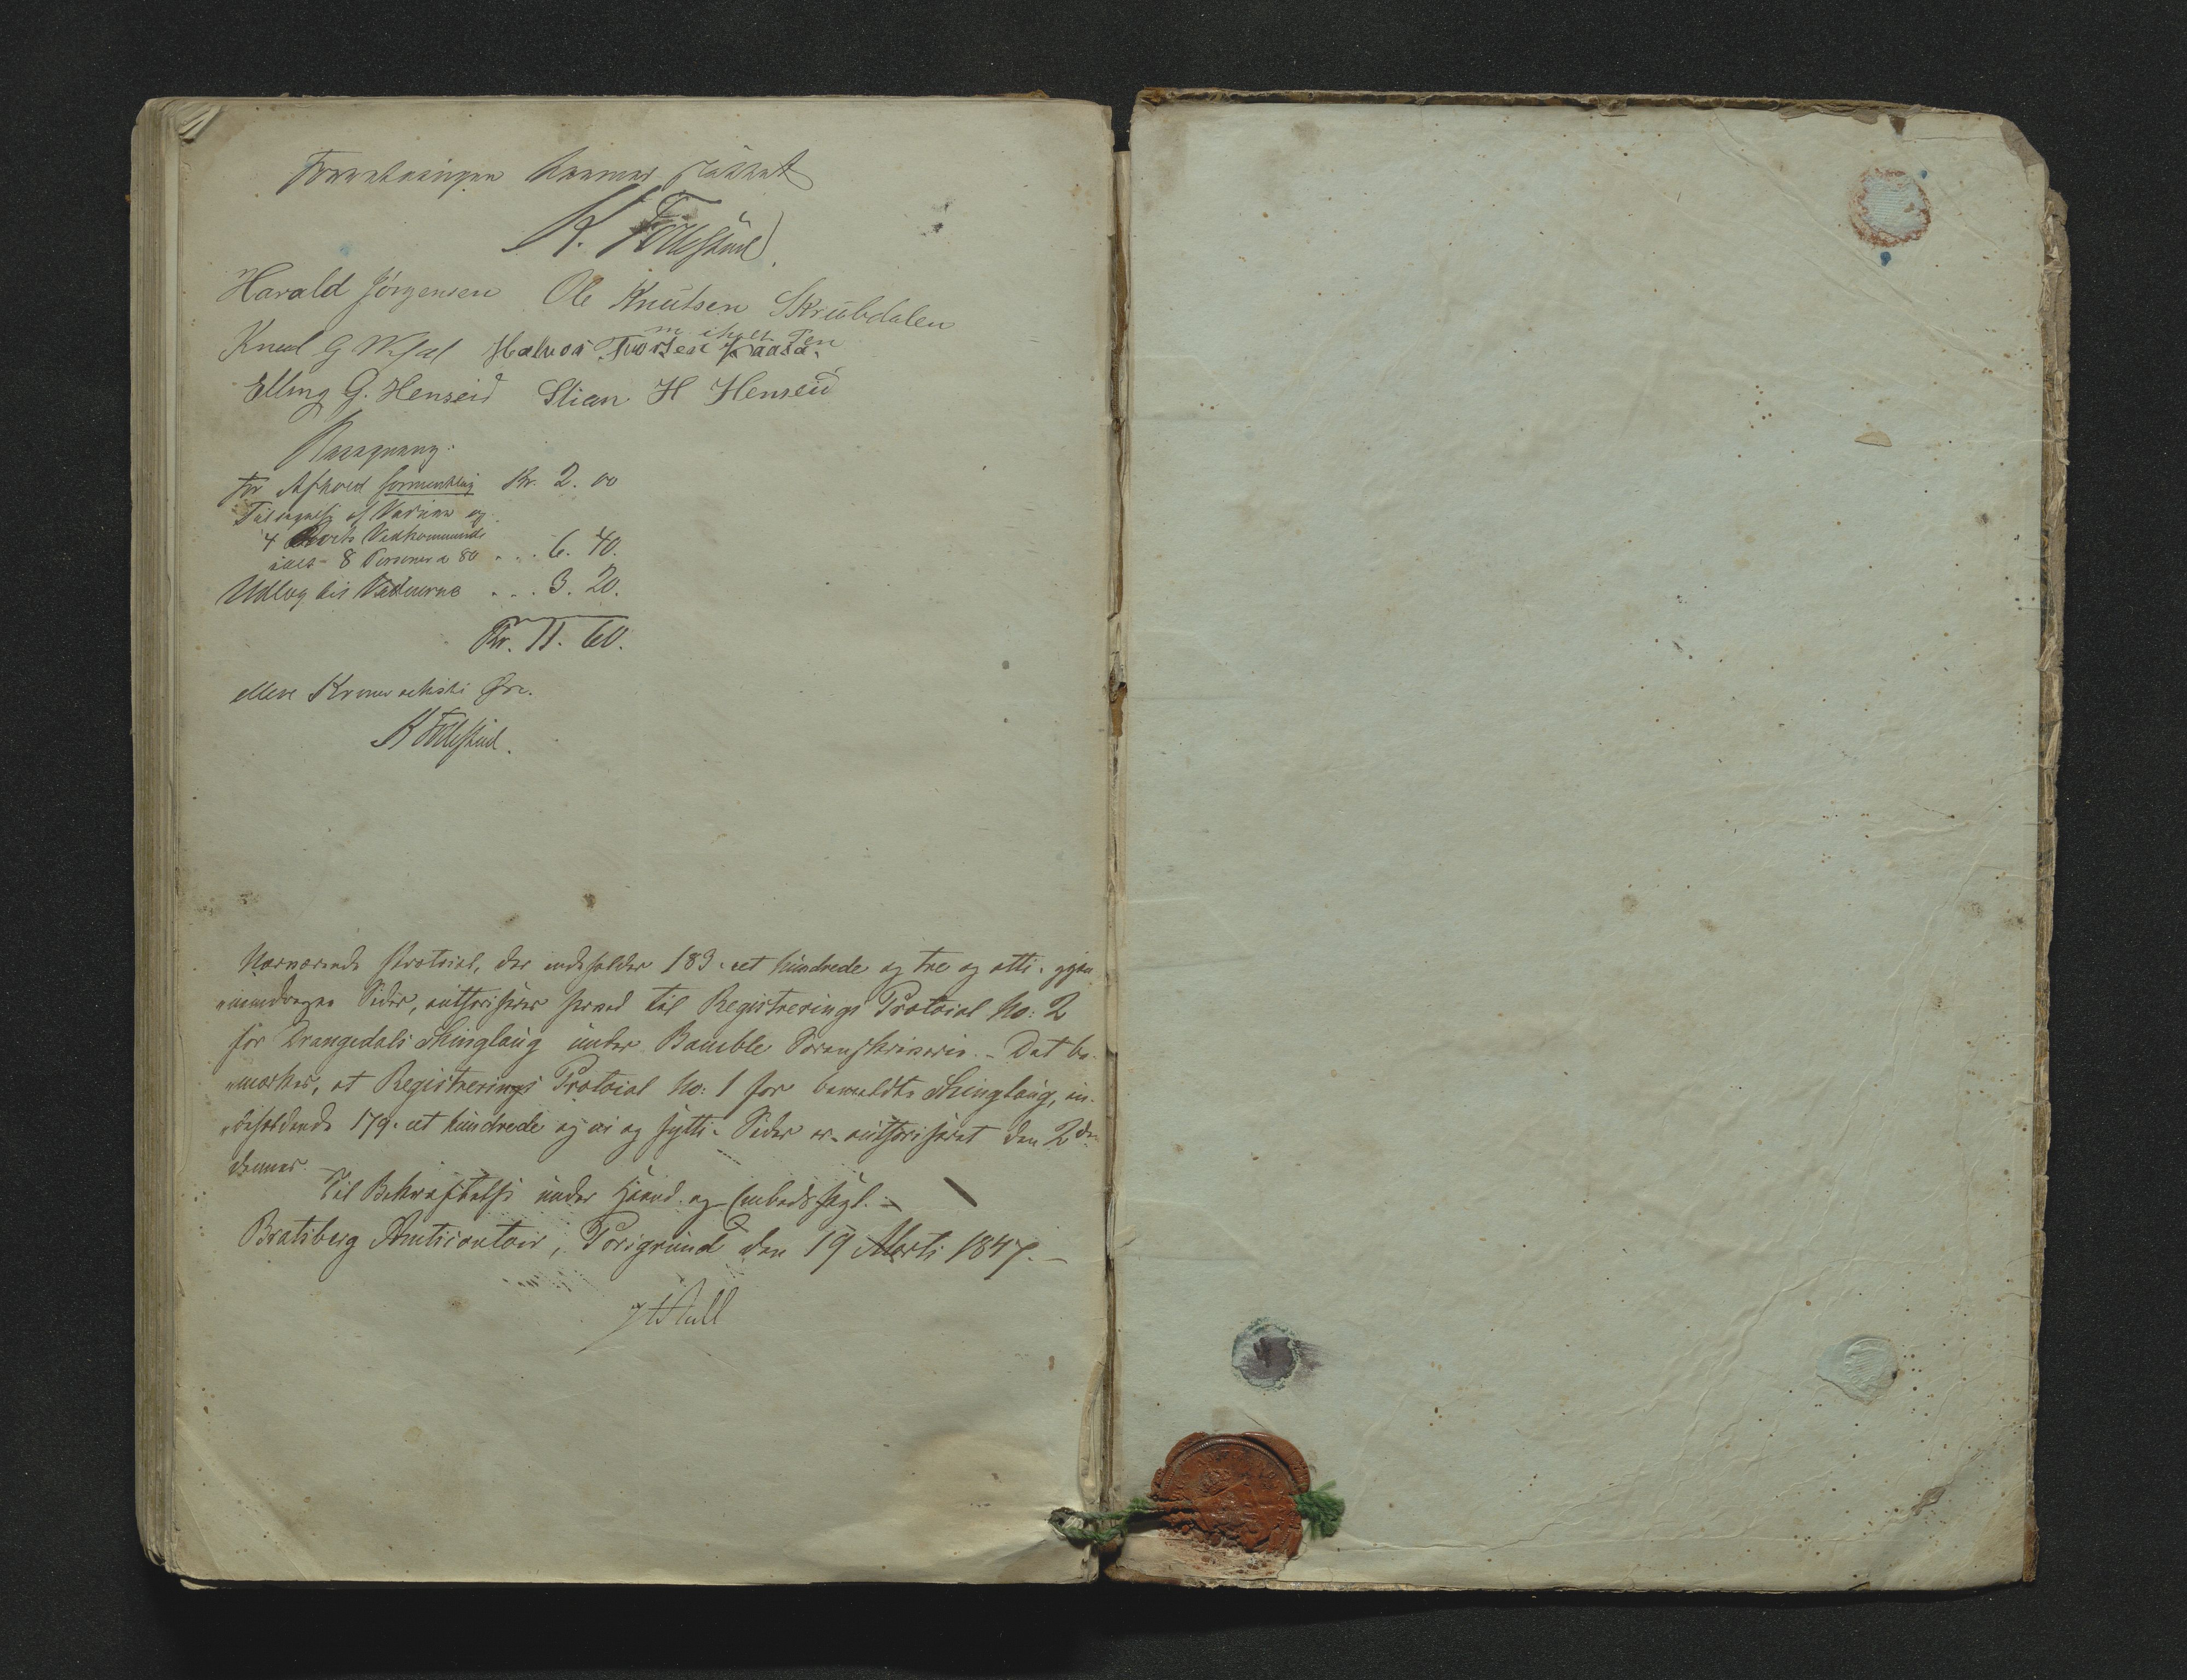 Forretningen saaledes sluttet
K. Follestad
Harald Jørgensen Ole Knutsen Skrubdalen
Knud G
m iholt Pen
Halvor Torsen Kaasa.
Elling G. Henseid Stian H Henseid
Regning:
for Afhold Kr. 2. 00
Tilsigelse af Vidner og
4 Vedkommende
ialt 8 Personer a 80 . . . 6. 40.
Udlæg til Vidnerne . . . 3. 20.
Kr. 11. 60.
elleve Kroner seksti Øre.
K Follestad.
Nærværende Protocol, der indeholder 183 - et hundrede og tre og otti - gjen
„nemdragne Sider, authoriseres herved til Registrerings Protocol No: 2
for Drangedals Thinglaug under Bamble Sorenskriverie. - Det be-
„mærkes, at Registrerings Protocol No: 1 for bemeldte Thinglaug, in-
„deholdende 179 - et hundrede og ni og sytti - Sider er authoriseret den 2den
dennes.
Til Bekræftelse under Haand og Embedssegl. -
Bratsberg Amtscontoir, Porsgrund den 19 Marts 1847. -
H Aall